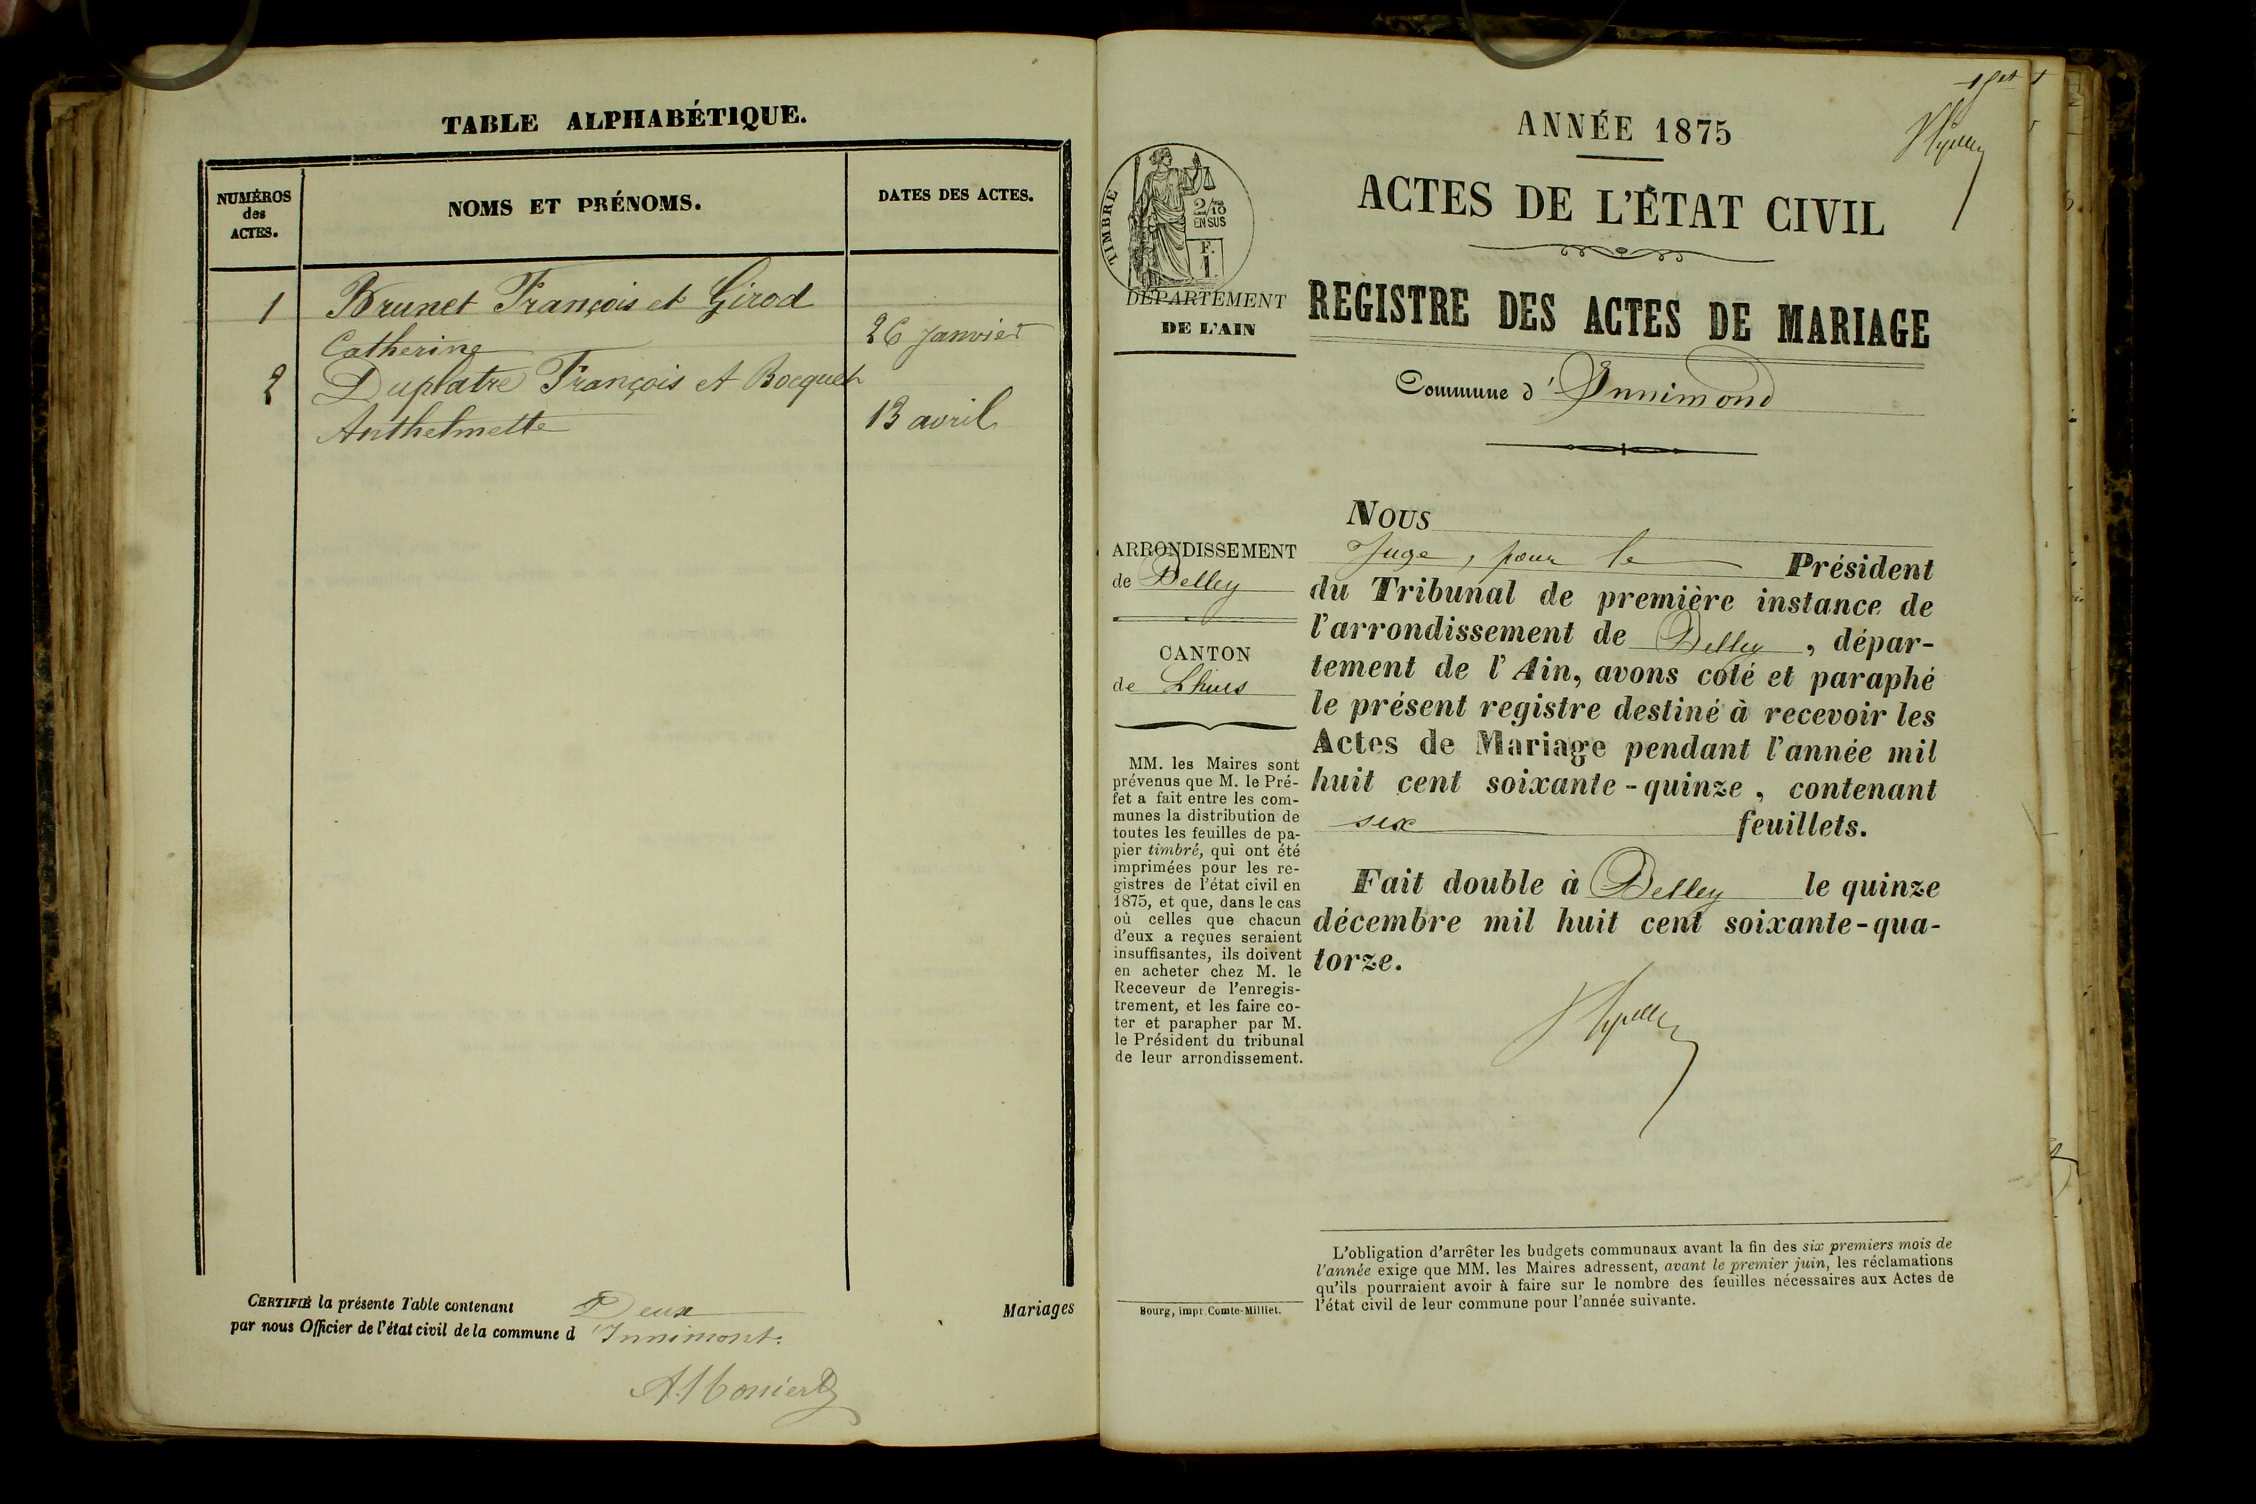 TABLE ALPHABÉTIQUE.
NUMÉROS
des
ACTES.
NOMS ET PRÉNOMS.
DATES DES ACTES.
1 Brunet François et Girod
Catherine 26 janvier
2 Duplatre François et Bocquet
Anthelmette 13 avril
CERTIFIÉ la présente Table contenant Deux Mariages
par nous Officier de l'état civil de la commune d'Innimont.
1
ANNÉE 1875
ACTES DE L'ÉTAT CIVIL
TIMBRE
2/10
EN SUS
F.
1.
DÉPARTEMENT
DE L'AIN
REGISTRE DES ACTES DE MARIAGE
Commune d'Innimond
ARRONDISSEMENT
de Belley
CANTON
de Lhuis
MM. les Maires sont
prévenus que M. le Pré-
fet a fait entre les com-
munes la distribution de
toutes les feuilles de pa-
pier timbré, qui ont été
imprimées pour les re-
gistres de l'état civil en
1875, et que, dans le cas
où celles que chacun
d'eux a reçues seraient
insuffisantes, ils doivent
en acheter chez M. le
Receveur de l'enregis-
trement, et les faire co-
ter et parapher par M.
le Président du tribunal
de leur arrondissement.
Bourg, impr. Comte-Milliet.
NOUS
Juge, pour le Président
du Tribunal de première instance de
l'arrondissement de Belley, dépar-
tement de l'Ain, avons coté et paraphé
le présent registre destiné à recevoir les
Actes de Mariage pendant l'année mil
huit cent soixante-quinze, contenant
six feuillets.
Fait double à Belley le quinze
décembre mil huit cent soixante-qua-
torze.
L'obligation d'arrêter les budgets communaux avant la fin des six premiers mois de
l'année exige que MM. les Maires adressent, avant le premier juin, les réclamations
qu'ils pourraient avoir à faire sur le nombre des feuilles nécessaires aux Actes de
l'état civil de leur commune pour l'année suivante.